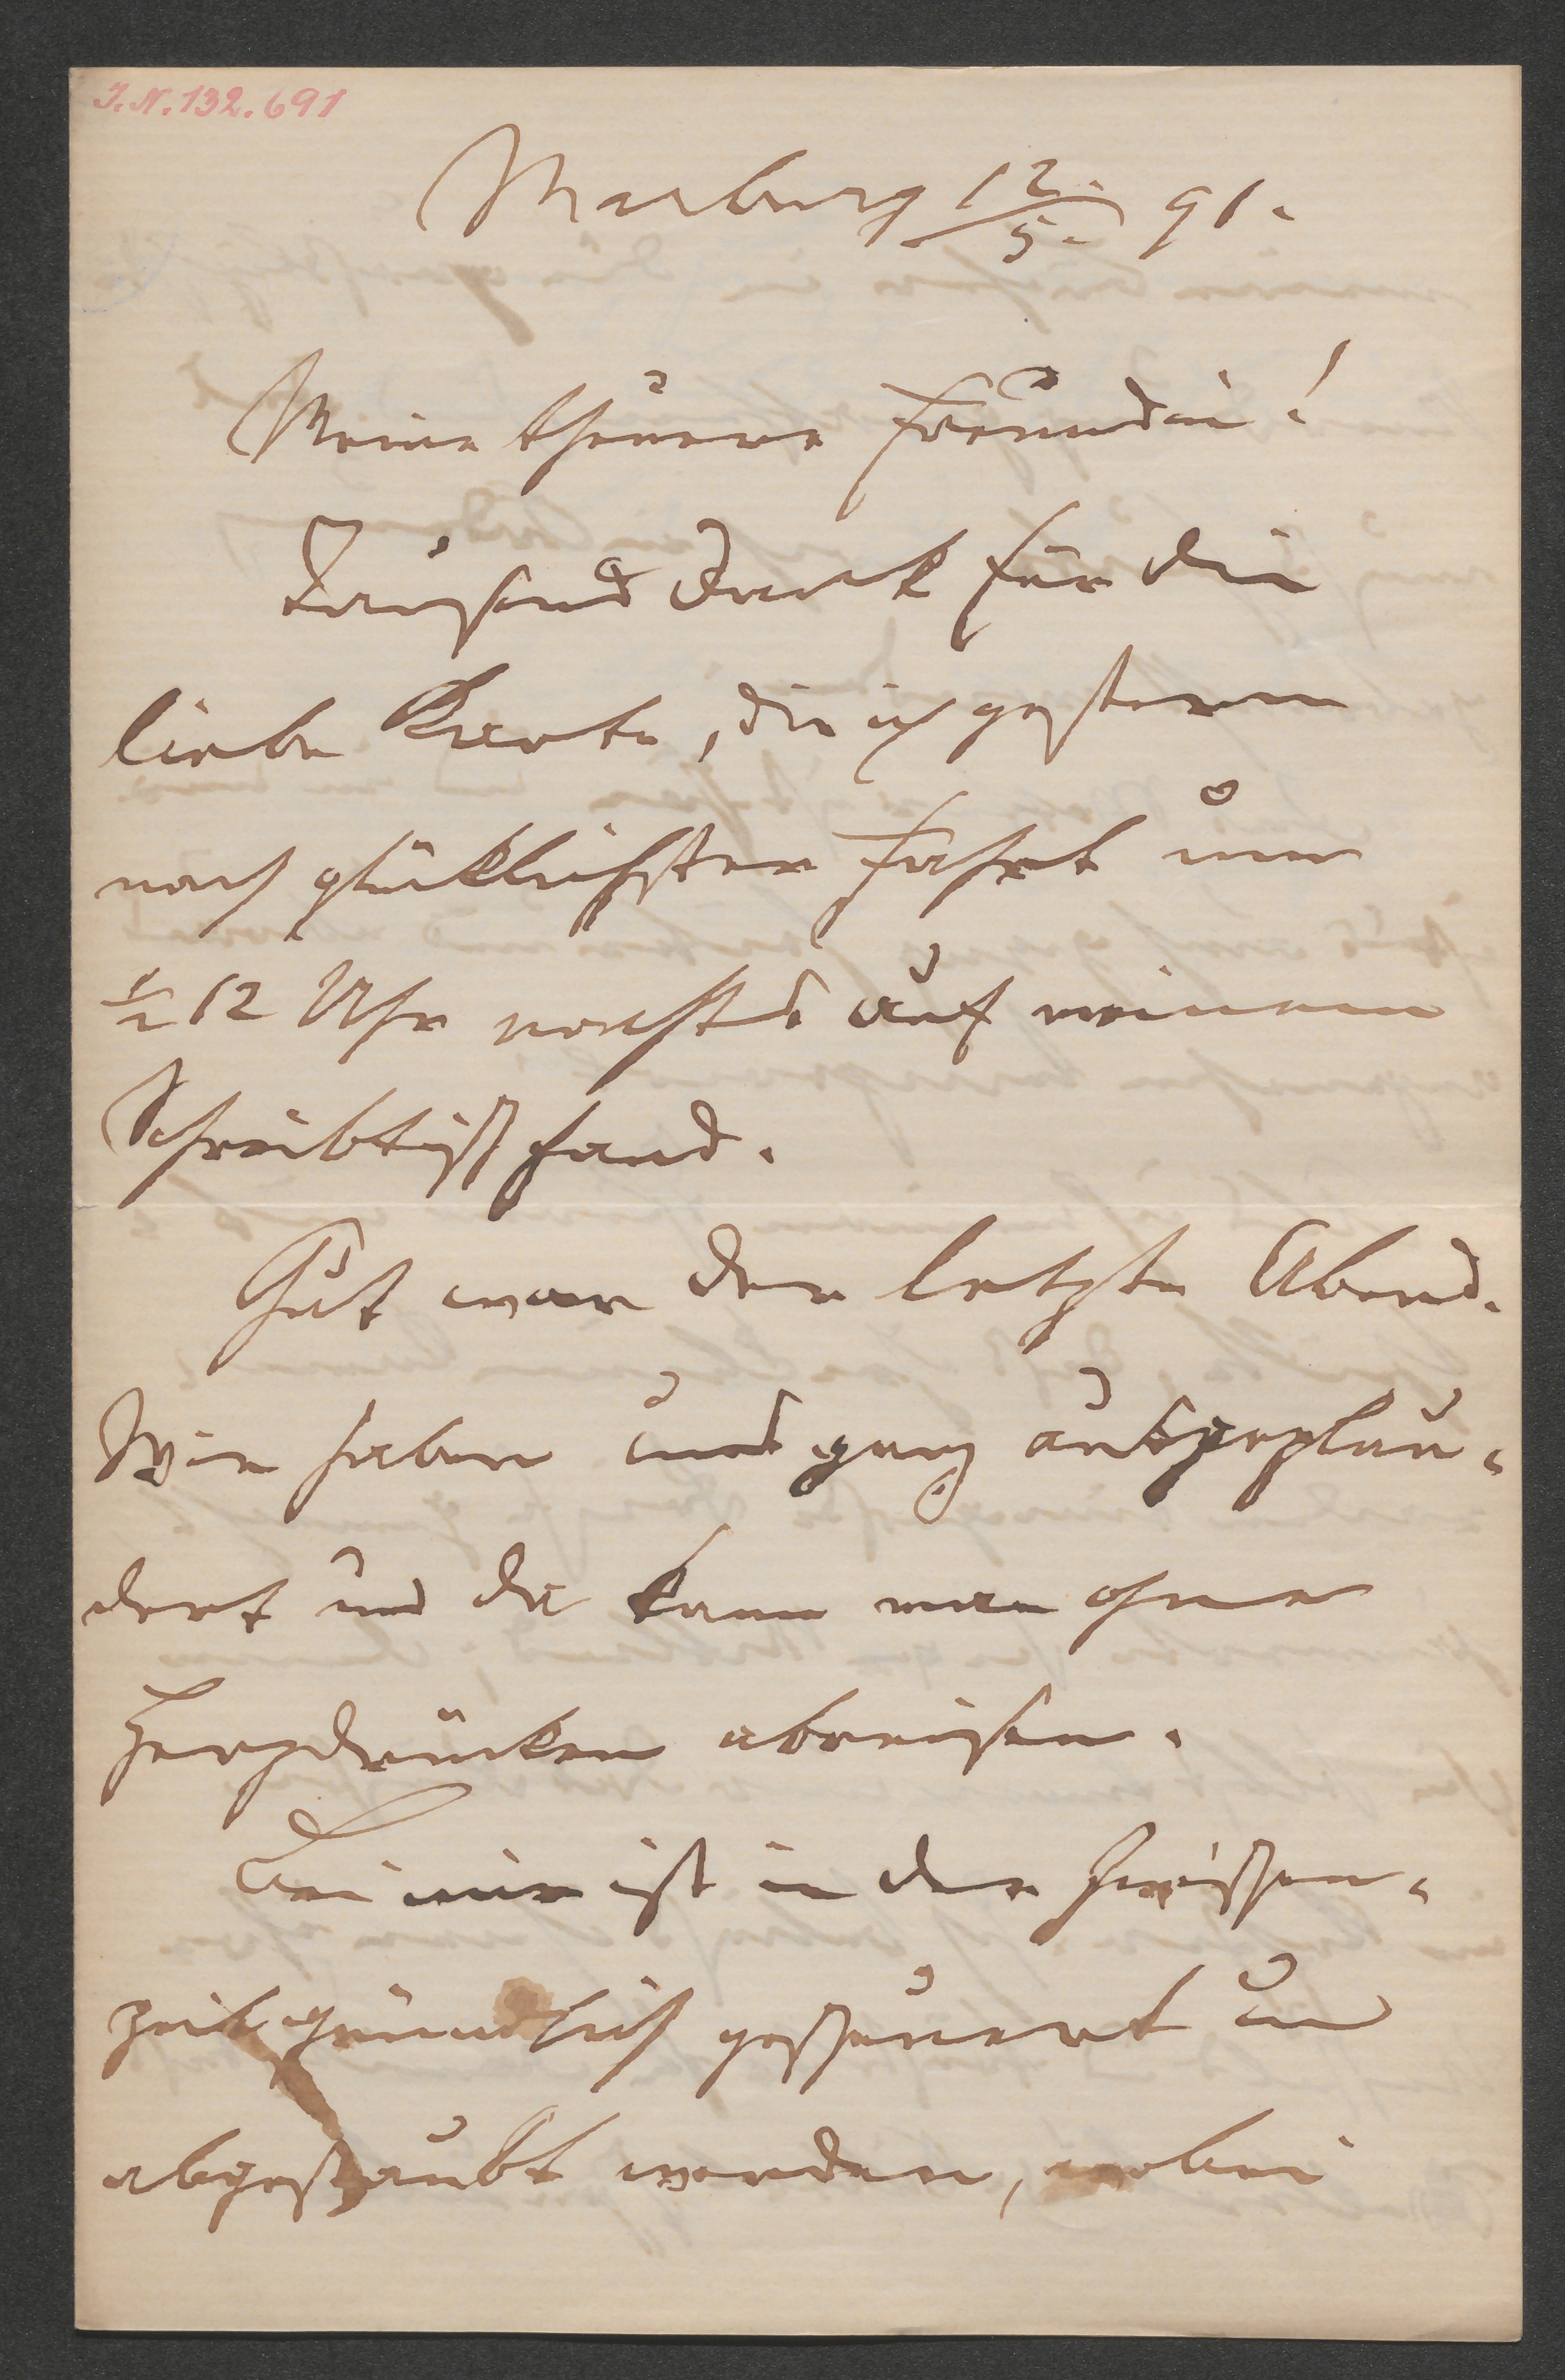 I.N. 132.691
Marburg 12./5. 91.
Meine theuere Freundin!
Tausend Dank für die
liebe Karte, die ich gestern
nach glücklichster Fahrt um
½ 12 Uhr nachts auf meinem
Schreibtisch fand.
Gut war der letzte Abend.
Wir haben uns ganz ausgeplau-
dert und da kann man ohne
Herzdrücken abreisen.
Bei mir ist in der Zwischen-
zeit gründlich gescheuert u
abgestaubt worden, wobei